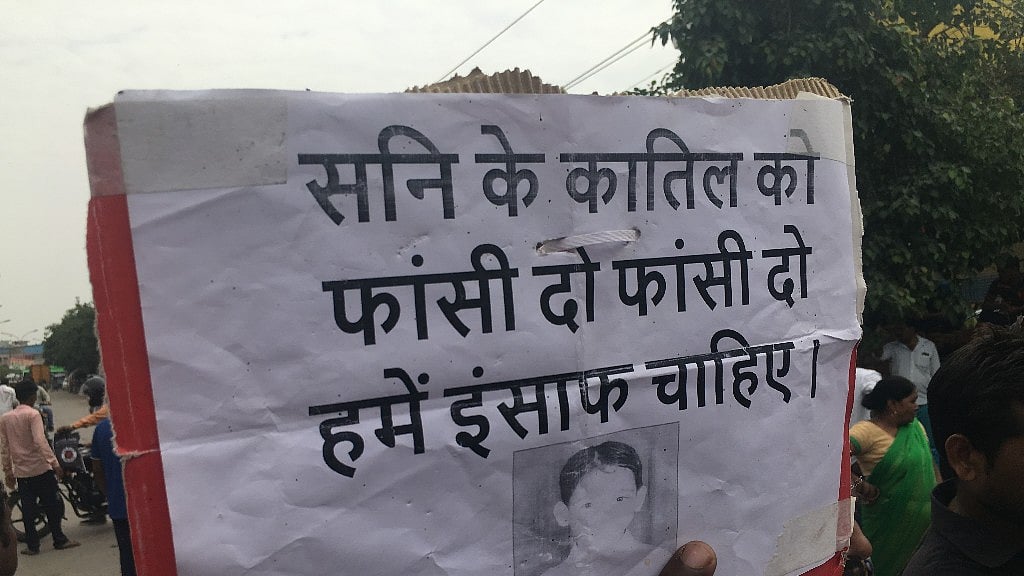 सनि के कातिल को
फांसी दो फांसी दो
हमें इंसाफ चाहिए।